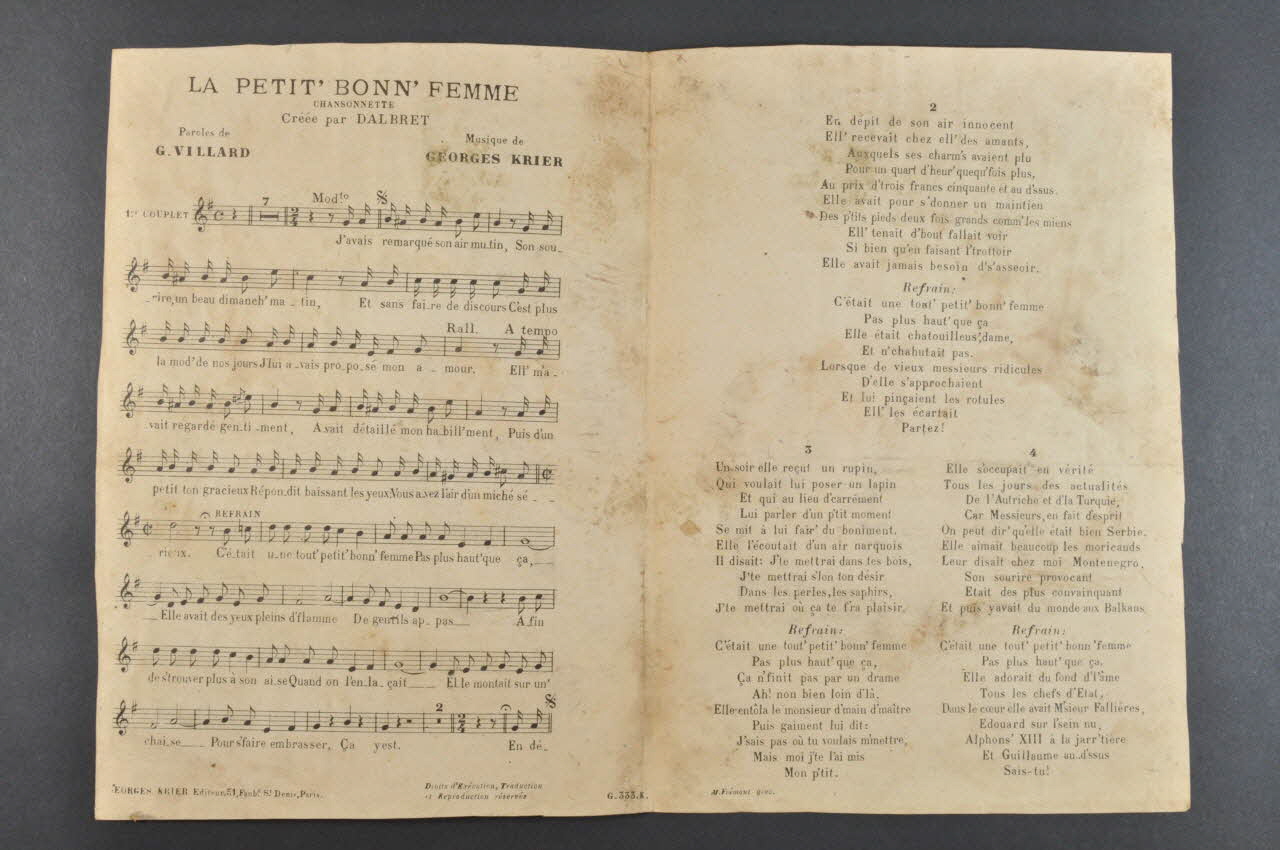 LA PETIT' BONN' FEMME
CHANSONNETTE
Créée par DALBRET
Paroles de
G. VILLARD
Musique de
GEORGES KRIER
Mod.to
7
2/4
1er COUPLET
J'avais remarqué son air mu_tin, Son sou_
_rire, un beau dimanch' ma_tin, Et sans fai_re de discours C'est plus
Rall. A tempo
la mod' de nos jours J'lui a_vais pro_po_sé mon a_mour. Ell' m'a_
_vait regardé gen_ti_ment, A_vait détaillé mon ha_bill'ment, Puis d'un
petit ton gracieux Répon_dit baissant les yeux: Vous a_vez l'air d'un miché sé_
REFRAIN
_rieux. C'é_tait u_ne tout' petit' bonn' femme Pas plus haut' que ça,__
Elle avait des yeux pleins d'flamme De gentils ap_pas__ A_fin
de s'trouver plus à son ai_se Quand on l'en_la_çait__ El_le montait sur un'
2
2/4
chai_se__ Pour s'faire embrasser, Ça y est. En dé_
GEORGES KRIER Editeur, 51, Faubg St Denis, Paris.
Droits d'Exécution, Traduction
et Reproduction réservés
G. 333. K.
2
En dépit de son air innocent
Ell' recevait chez ell' des amants,
Auxquels ses charm's avaient plu
Pour un quart d'heur' quequ'fois plus,
Au prix d'trois francs cinquante et au d'ssus.
Elle avait pour s'donner un maintien
Des p'tits pieds deux fois grands comm' les miens
Ell' tenait d'bout fallait voir
Si bien qu'en faisant l'trottoir
Elle avait jamais besoin d's'asseoir.
Refrain:
C'était une tout' petit' bonn' femme
Pas plus haut' que ça
Elle était chatouilleus', dame,
Et n'chahutait pas.
Lorsque de vieux messieurs ridicules
D'elle s'approchaient
Et lui pinçaient les rotules
Ell' les écartait
Partez!
3
Un soir elle reçut un rupin,
Qui voulait lui poser un lapin
Et qui au lieu d'carrément
Lui parler d'un p'tit moment
Se mit à lui fair' du boniment.
Elle l'écoutait d'un air narquois
Il disait: J'te mettrai dans tes bois,
J'te mettrai s'lon ton désir
Dans les perles, les saphirs,
J'te mettrai où ça te f'ra plaisir.
Refrain:
C'était une tout' petit' bonn' femme
Pas plus haut' que ça,
Ça n'finit pas par un drame
Ah! non bien loin d'là.
Elle entôla le monsieur d'main d'maître
Puis gaiment lui dit:
J'sais pas où tu voulais m'mettre,
Mais moi j'te l'ai mis
Mon p'tit.
4
Elle s'occupait en vérité
Tous les jours des actualités
De l'Autriche et d'la Turquie,
Car Messieurs, en fait d'esprit
On peut dir' qu'elle était bien Serbie.
Elle aimait beaucoup les moricauds
Leur disait chez moi Montenegro,
Son sourire provocant
Etait des plus convainquant
Et puis y avait du monde aux Balkans.
Refrain:
C'était une tout' petit' bonn' femme
Pas plus haut' que ça.
Elle adorait du fond d'l'âme
Tous les chefs d'Etat,
Dans le cœur elle avait M'sieur Fallières,
Edouard sur l'sein nu,
Alphons' XIII à la jarr'tière
Et Guillaume au d'ssus
Sais-tu!
M. Frémont grav.